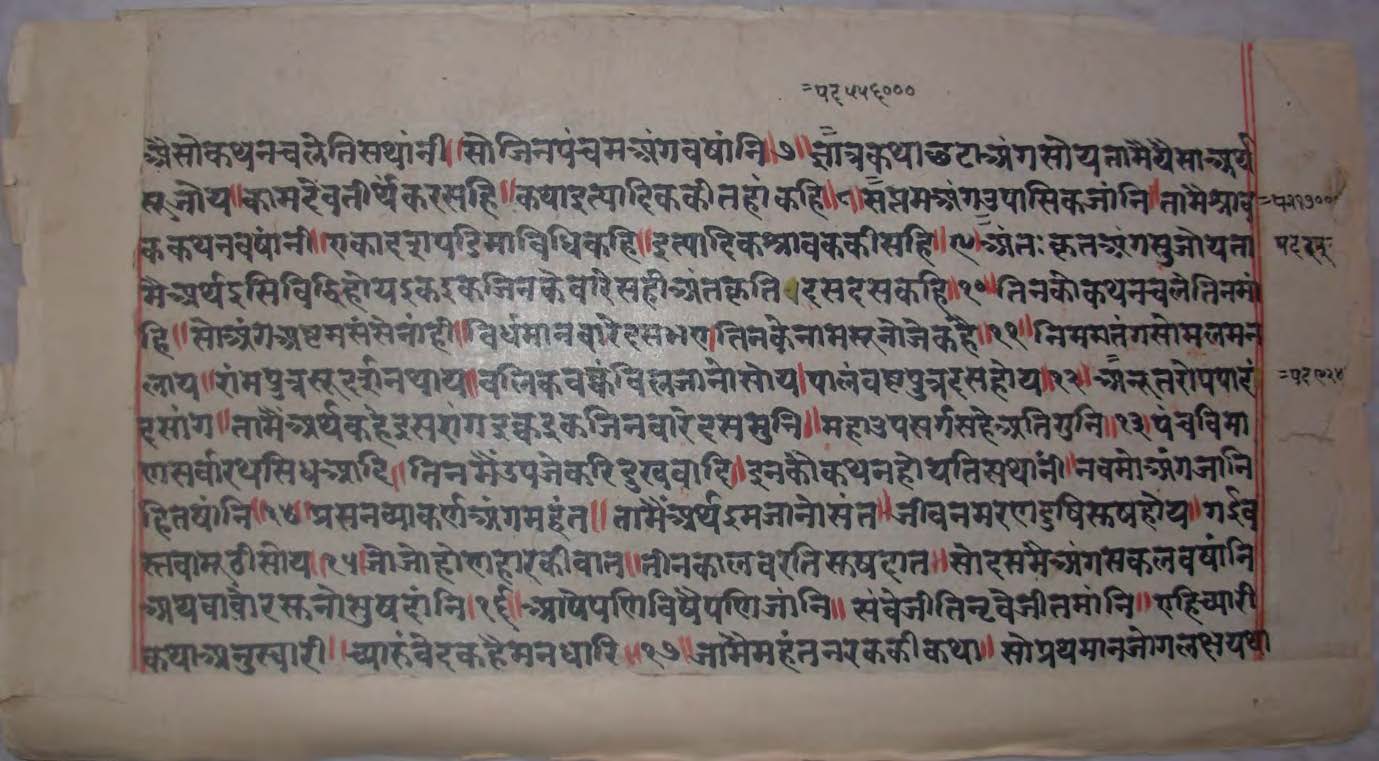 =पद ५५६०००
अैसो कथन चले तिस थांनी ॥ सो जिन पंचम अंग वषांनि ॥ ७ ॥ ज्ञात्र कथा छटा अंग सोय तामै यैसा अर्थ
सु जोय ॥ कामदेव तीर्थंकर सहि ॥ कथा इत्यादिक की तहां कहि ॥ ८ ॥ सप्तम अंग उपासिक जांनि ॥ तामै श्राव
क कथन वषांनी ॥ एकादश पडिमा विधि कहि ॥ इत्यादिक श्रावक की सहि ॥ ९ ॥ अंतःकृत अंग सु जोय ता
मै अर्थ इसि विद्धि होय इक इक जिन के वारे सही अंतकृति । दस दस कहि ॥ १० ॥ तिन को कथन चले तिनमां
हि ॥ सो अंग अष्टम संसै नांही ॥ विर्धमान वारे दस भए । तिन के नाम सुनो जे कहै ॥ ११ ॥ नि मम तंग सोमल मन
लाय ॥ रांमपुत्र सुदर्शन थाय ॥ वलिक वक्कंविल जानो सोय । पालंवष्ट पुत्र दस होय ॥ १२ ॥ अनुतरोपपाद
दसांग ॥ तामैं अर्थ कहे इस रांग इक इक जिन वारे दस सुनि ॥ महा उपसर्ग सहे अति गुनि ॥ १३ ॥ पंच विमा
ण सर्वारथसिध आदि ॥ तिनमैं उपजे करि दुख वादि ॥ इन कौ कथन होय तिस थांनी ॥ नवमो अंग जानि
हित थांनि ॥ १४ ॥ प्रसन व्याकर्ण अंग महंत ॥ तामैं अर्थ इम जानो संत ॥ जीवन मरण दुषि सुष होय ॥ गई व
स्तवा मूठी सोय ॥ १५ ॥ जो जो होणहार की वात ॥ तीन काल वरति सुष दात ॥ सो दसमै अंग सकल वषांनि
अथवा वौर सुनो सुषदांनि ॥ १६ ॥ आषेपणि विषैपणि जांनि ॥ संवेजीति नृवैजीत मांनि ॥ एहि च्यारी
कथा अनुस्वारी ॥ च्यारुं वेद कहै मन धारि ॥ १७ ॥ जामै महंत नर ककी कथा ॥ सो प्रथमानजोग लक्षयथा